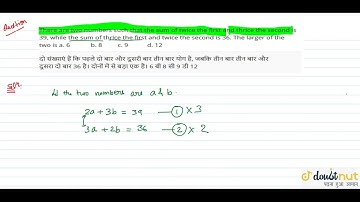 Question
There are two numbers such that the sum of twice the first and thrice the second is
39, while the sum of thrice the first and twice the second is 36. The larger of the
two is a. 6 b. 8 c. 9 d. 12
दो संख्याएं हैं कि पहले दो बार और दूसरी बार तीन बार योग है, जबकि तीन बार तीन बार और
दूसरा दो बार 36 है। दोनों में से बड़ा एक है। 6 बी 8 सी 9 डी 12
Solⁿ
let the two numbers are a & b.
2a + 3b = 39 — ① × 3
3a + 2b = 36 — ② × 2
doubtnut